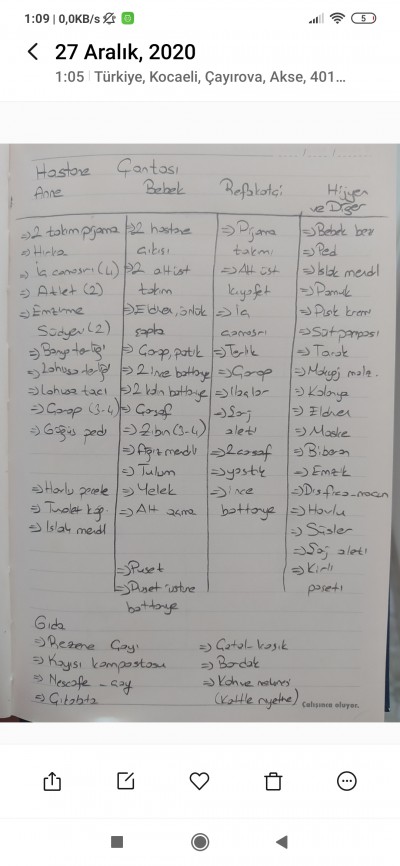 1:09 | 0,0KB/s
5
27 Aralık, 2020
1:05 Türkiye, Kocaeli, Çayırova, Akse, 401...
Hastane Çantası
Anne
Bebek
Refakatçi
Hijyen
ve Diğer
⇒ 2 takım pijama
⇒ Hırka
⇒ İç çamaşırı (4)
⇒ Atlet (2)
⇒ Emzirme
Sütyeni (2)
⇒ Banyo terliği
⇒ Lohusa terliği
⇒ Lohusa tacı
⇒ Çorap (3-4)
⇒ Göğüs pedi
⇒ Havlu peçete
⇒ Tuvalet kağ.
⇒ Islak mendil
⇒ 2 hastane
çıkışı
⇒ 2 alt üst
takım
⇒ Eldiven, önlük
şapka
⇒ Çorap, patik
⇒ 2 ince battaniye
⇒ 2 kalın battaniye
⇒ Çarşaf
⇒ Zıbın (3-4)
⇒ Ağız mendili
⇒ Tulum
⇒ Yelek
⇒ Alt açma
⇒ Puset
⇒ Puset üstüne
battaniye
⇒ Pijama
takımı
⇒ Alt üst
kıyafet
⇒ İç
çamaşırı
⇒ Terlik
⇒ Çorap
⇒ İlaçlar
⇒ Şarj
aleti
⇒ 2 çarşaf
⇒ yastık
⇒ ince
battaniye
⇒ Bebek bezi
⇒ Ped
⇒ Islak mendil
⇒ Pamuk
⇒ Pişik kremi
⇒ Süt pompası
⇒ Tarak
⇒ Makyaj malz.
⇒ Kolonya
⇒ Eldiven
⇒ Maske
⇒ Biberon
⇒ Emzik
⇒ Havlu
⇒ Süsler
⇒ Şarj aleti
⇒ Kirli
poşeti
Gıda
⇒ Rezene Çayı
⇒ Kayısı kompostosu
⇒ Nescafe - çay
⇒ Çikolata
⇒ Çatal - kaşık
⇒ Bardak
⇒ Kahve makinesi
(Kettle niyetine)
Çalışınca oluyor.